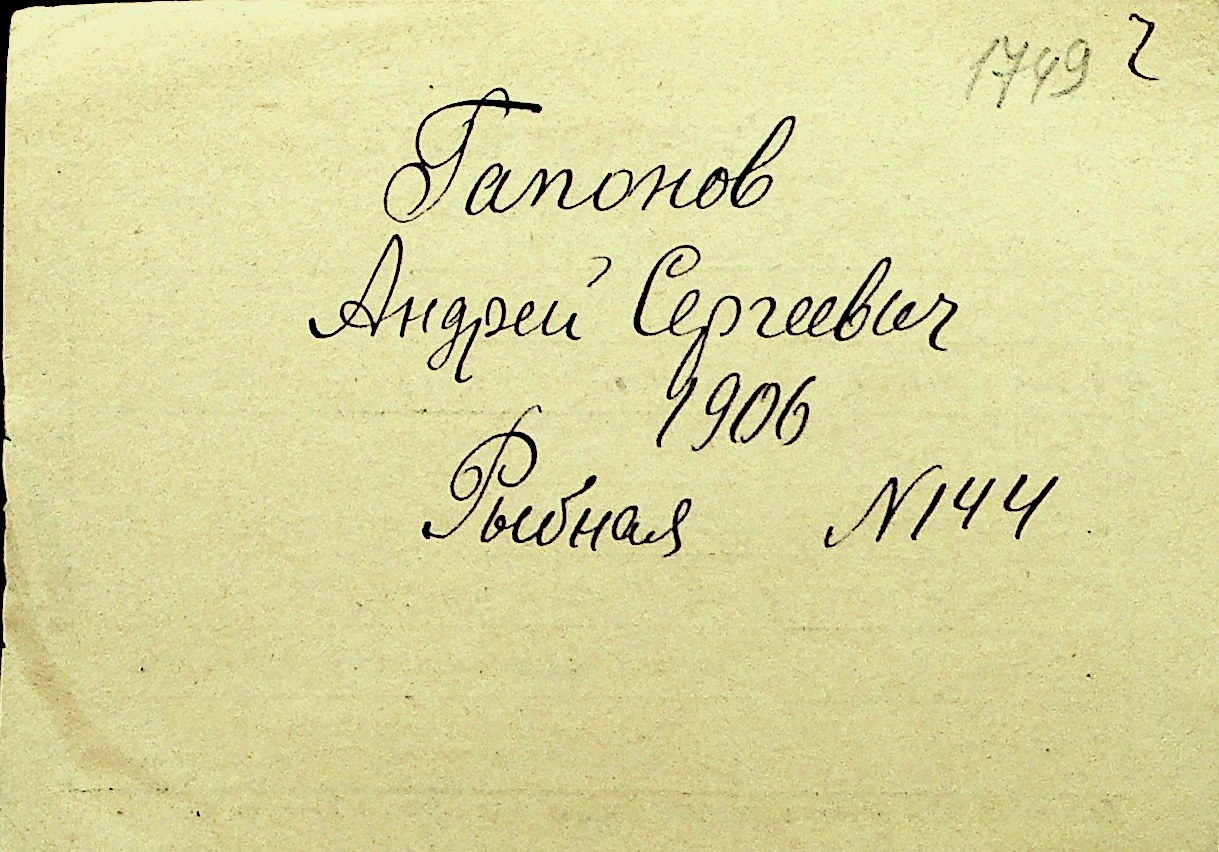 1749 г
Гапонов
Андрей Сергеевич
1906
Рыбная N144